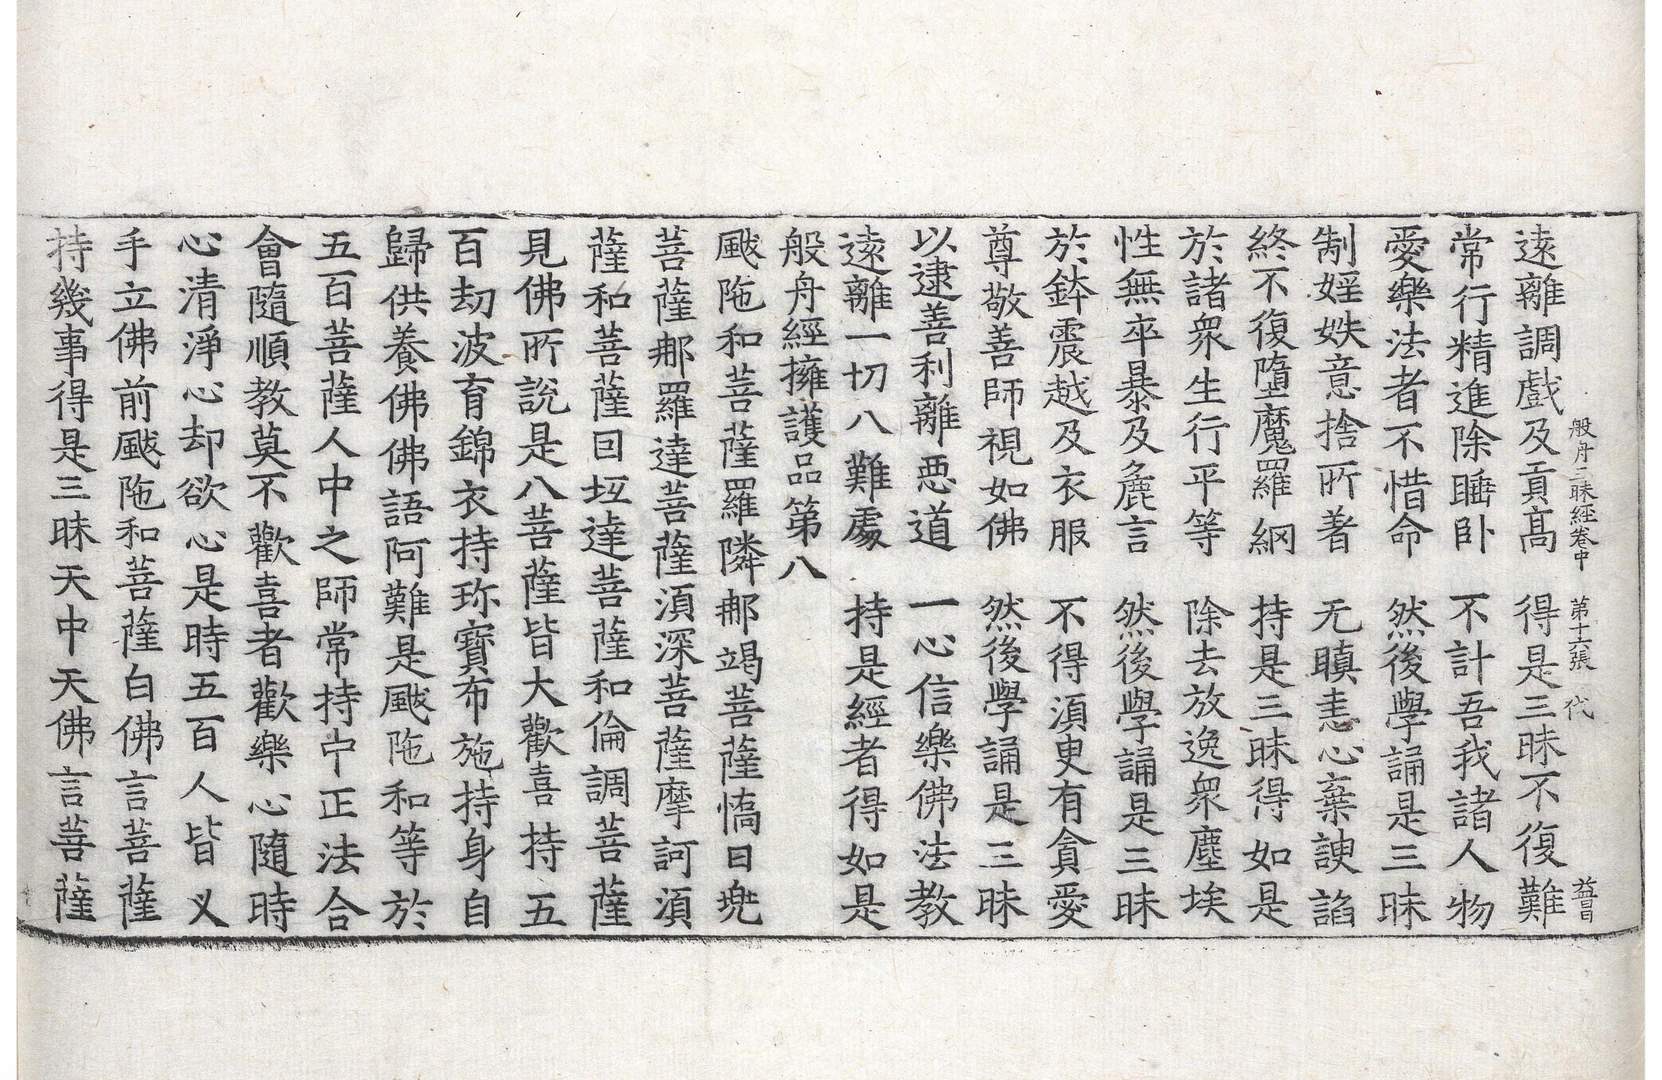 般舟三昧經卷中 第十六張 代
遠離調戲及貢高 得是三昧不復難
常行精進除睡卧 不計吾我諸人物
愛樂法者不惜命 然後學誦是三昧
制婬妷意捨所著 无瞋恚心棄諛諂
終不復墮魔羅網 持是三昧得如是
於諸衆生行平等 除去放逸衆塵埃
性無卒暴及麁言 然後學誦是三昧
於鉢震越及衣服 不得湏臾有貪愛
尊敬善師視如佛 然後學誦是三昧
以逮善利離惡道 一心信樂佛法教
遠離一切八難處 持是經者得如是
般舟經擁護品第八
颰陁和菩薩羅隣那竭菩薩憍日兜
菩薩那羅達菩薩湏深菩薩摩訶湏
薩和菩薩因坻達菩薩和倫調菩薩
見佛所說是八菩薩皆大歡喜持五
百劫波育錦衣持珎寶布施持身自
歸供養佛佛語阿難是颰陁和等於
五百菩薩人中之師常持中正法合
會隨順教莫不歡喜者歡樂心隨時
心清淨心却欲心是時五百人皆叉
手立佛前颰陁和菩薩白佛言菩薩
持幾事得是三昧天中天佛言菩薩